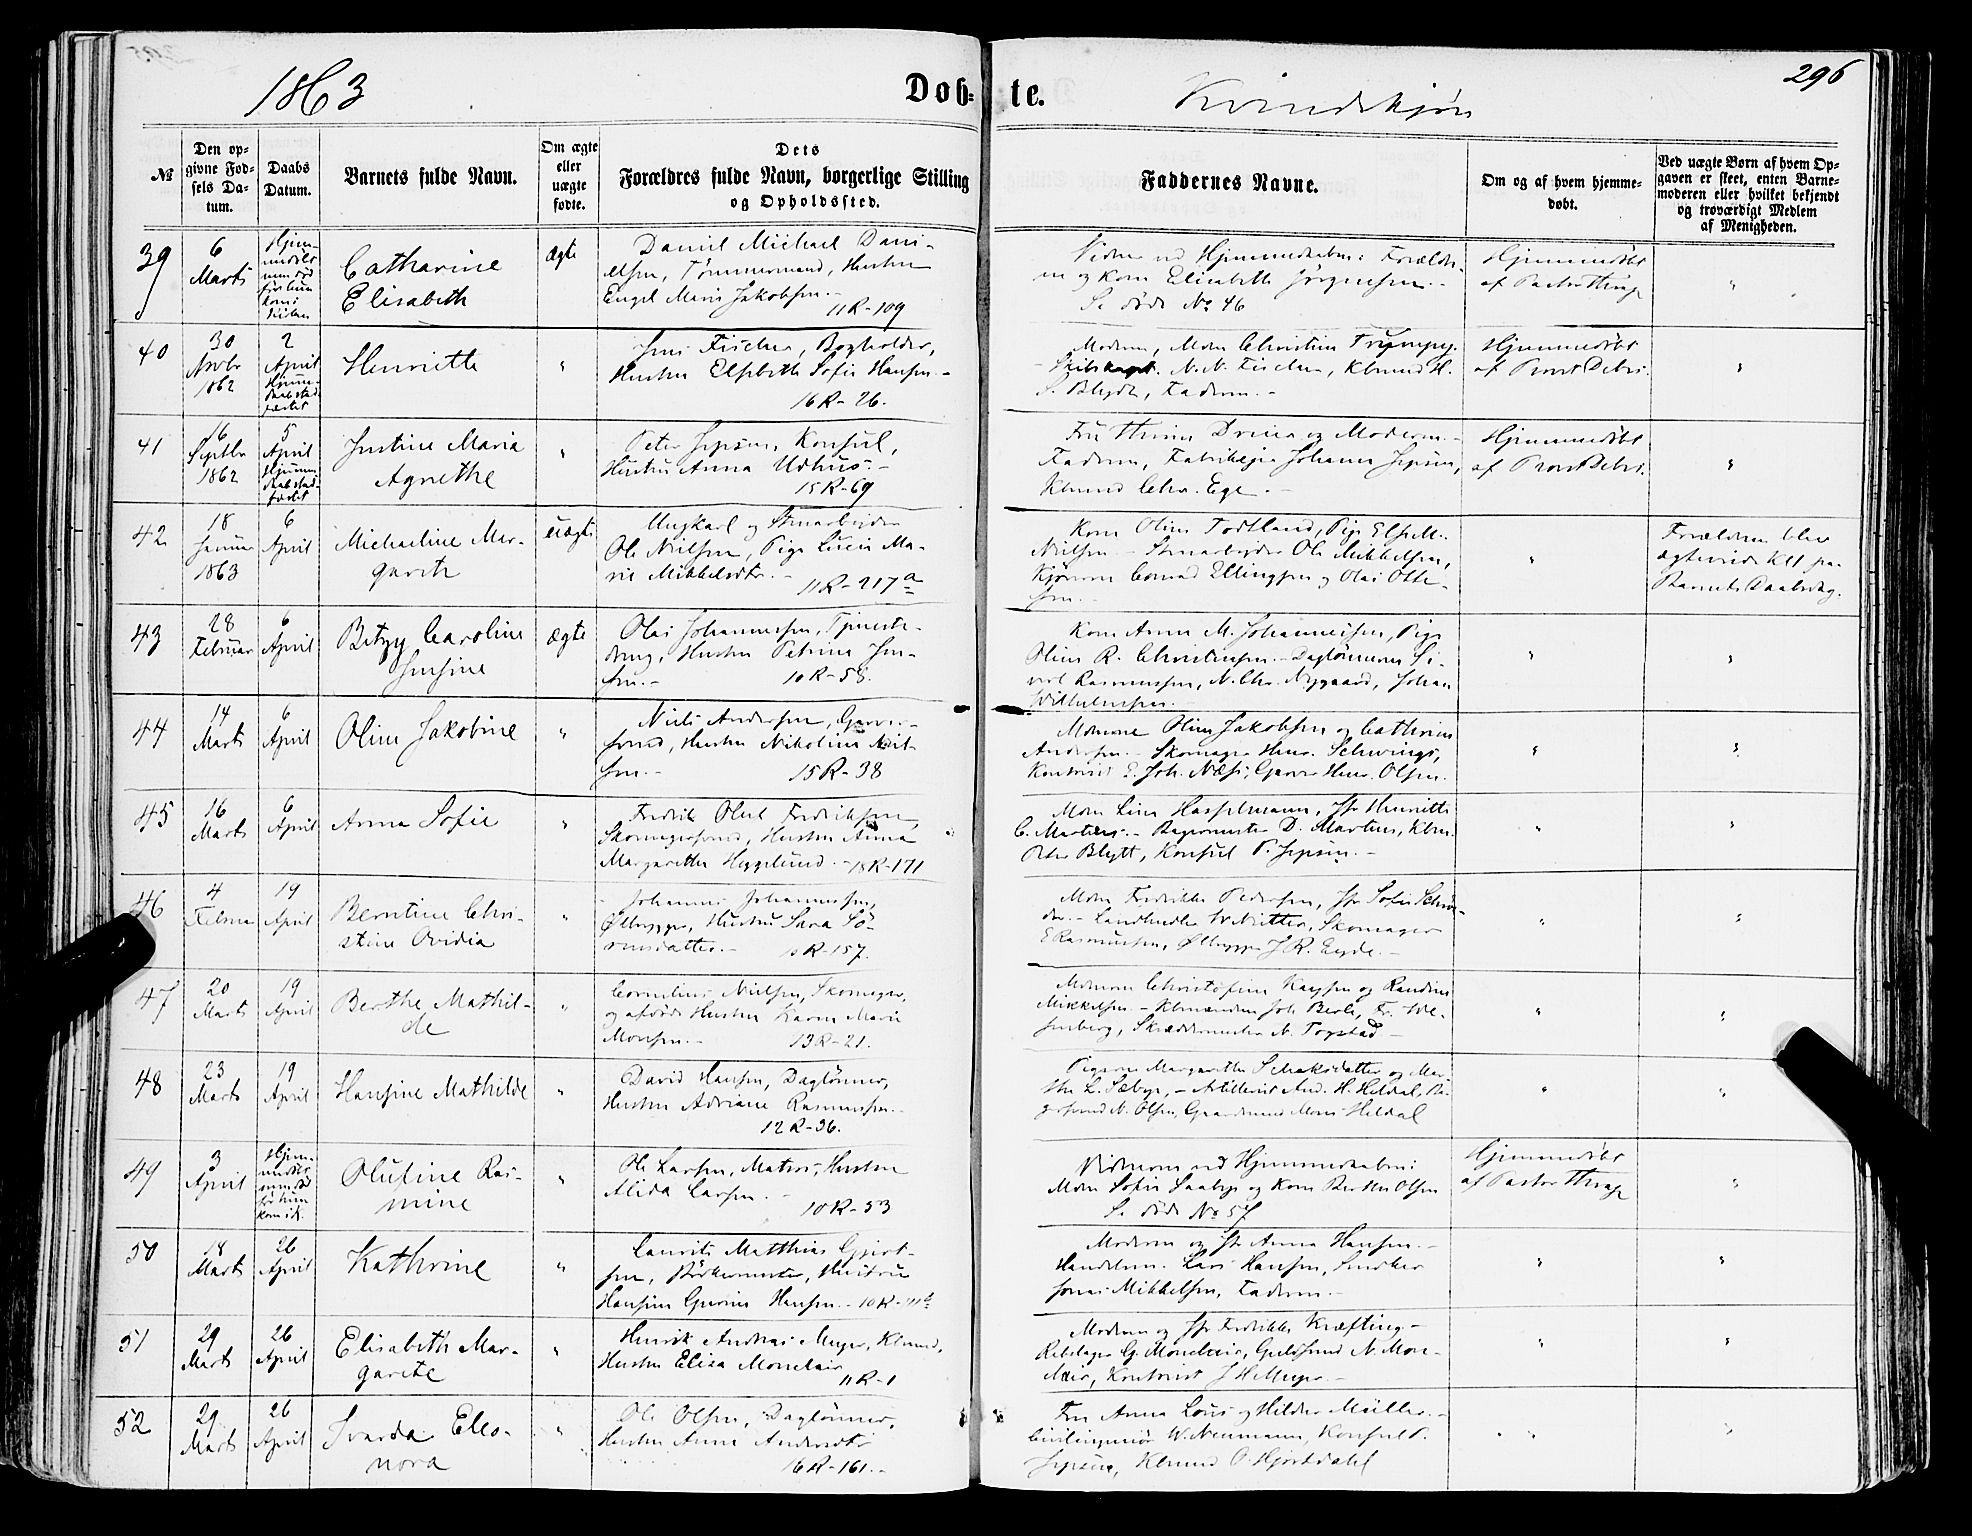 1863
Døb-
te.
Kvindekjøn
296
№
Den op-
givne Fød-
sels Da-
tum.
Daabs
Datum.
Barnets fulde Navn.
Om ægte
eller
uægte
fødte.
Dets
Forældres fulde Navn, borgerlige Stilling
og Opholdssted.
Faddernes Navne.
Om og af hvem hjemme-
døbt.
Ved uægte Børn af hvem Op-
gaven er skeet, enten Barne-
moderen eller hvilket bekjendt
og troværdigt Medlem
af Menigheden.
39
6
Marts
Catharine
Elisabeth
ægte
Daniel Michael Dani-
elsen, Tømmermand, Hustru
Engel Marie Jakobsen.-
11R-109
Vidner ved Hjemmedaaben: Forældre-
ne og Kone Elisabeth Jørgensen.-
Se døde No 46
Hjemmedøbt
af Pastor Thrap
"
40
30
Novbr
1862
2
April
Hjemme-
daab stad-
fæstet
Henriette
"
Jens Fischer, Bogholder,
Hustru Elsebeth Sofie Hansen.-
16R-26.
Moderen, Mdm Christine
N. N. Fischer, Kbmnd H.
S. Blydt, Faderen.-
Hjemmedøbt
af Provst Debes.
"
41
16
Septbr
1862
5
April
Hjemme-
daab stad-
fæstet
Justine Maria
Agnethe
"
Peter Jepsen, Konsul,
Hustru Anna Udhus.-
15R-69
Fru Thrine Dreier og Moderen.-
Faderen, Fabrikejer Johannes Jepsen,
Kbmnd Chr. Ege.-
Hjemmedøbt
af Provst Debes.
"
42
18
Januar
1863
6
April
Michaeline Mar-
grete
uægte
Ungkarl og Stenarbeider
Ole Nielsen, Pige Lucie Ma-
rie Mikkelsdtr.-
11R-217a
Kone Oline Todtland, Pige Else M.
Nielsen.- Stenarbeider Ole Mikkelsen,
Conrad Ellingsen og Olai Olle-
sen.-
"
Forældrene blev
ægteviede Kl 1 paa
Barnets Daabsdag.
43
28
Februar
6
April
Betzy Caroline
Jensine
ægte
Olai Johannessen, Tjeneste-
dreng, Hustru Petrine Jen-
sen.-
10R-58.
Kone Anne M. Johannessen, Pige
Oline R. Christensen.- Daglønnerne Si-
vert Rasmussen, N. Chr. Nygaard, Johan
Wilhelmsen.-
"
"
44
14
Marts
6
April
Oline Jakobine
"
Niels Andersen, Garver-
svend, Hustru Nikoline Niel-
sen.-
15R-38
Mdmne Oline Jakobsen og Cathrine
Andersen.- Skomager Henr. Schwings,
Kontorist E. Joh. Næss, Garver Henr. Olsen.
"
"
45
16
Marts
6
April
Anna Sofie
"
Fredrik Oluf Fredriksen,
Skomagersvend, Hustru Anna
Margarethe Heggelund.-18R-171
Mdm Line Hasselmann, Jfr Henriette
C. Martens.- Bagermester D. Martens, Kbm.
Peter Blytt, Konsul P. Jepsen.-
"
"
46
4
Februar
19
April
Berntine Chri-
stine Ovidia
"
Johannes Johannessen,
Ølbrygger, Hustru Sara Sø-
rensdatter.-
10R-157.
Mdm Fredrikke Pedersen, Jfr Sofie Schrø-
der.- Landhandler W. Nitter, Skomager
E Rasmussen, Ølbrygger J. R. Eyde.-
"
"
47
20
Marts
19
April
Berthe Mathil-
de
"
Cornelius Nielsen, Skomager,
og afdøde Hustru Karen Marie
Monsen.-
13R-21.
Mdmne Christofine Kaysen og Randine
Mikkelsen.- Kbmændene Joh. Berle, Fr. We-
senberg, Skræddermester N. Togstad-
"
"
48
23
Marts
19
April
Hansine Mathilde
"
David Hansen, Daglønner,
Hustru Adriane Rasmussen.
12R-36.
Pigerne Margarethe Schaksdatter og Mar-
the L. Sæbye,- Artillerist And. H. Heldal, Ba-
gersvend N. Olsen, Gaardmand Mons Heldal
"
"
49
3
April
Olufine Ras-
mine
"
Ole Larsen, Matros, Hustru
Alida Larsen.-
10R-53
Vidnerne ved Hjemmedaaben:
Mdm Sofie Saabye og Kone Berthe Olsen
Se døde No 57
Hjemmedøbt
af Pastor Thrap
"
50
18
Marts
26
April
Kathrine
"
Laurits Matthias Gjert-
sen, Bødkermester, Hustru
Hansine Gurine Hansen.-10R-111b
Moderen og Jfr Anna Hansen.-
Handelsm. Lars Hansen, Snedker
Jonas Mikkelsen, Faderen.-
"
"
51
29
Marts
26
April
Elisabeth Mar-
grete
"
Henrik Andreas Meyer, Kbmnd,
Hustru Eliza Monclair
11R-1
Moderen og Jfr Fredrikke Kræfting-
Rebslager G. Monclair, Guldsmd N. Mon-
clair, Kontorist J H Meyer.-
"
"
52
29
Marts
26
April
Svarda Eleo-
nora
"
Ole Olsen, Daglønner,
Hustru Anne Andersdtr
16R-161.-
Fru Anna Lous og Hilder Müller.-
Civilingeniør W. Neumann, Konsul P.
Jepsen, Kbmnd O. Hjortdahl
"
"